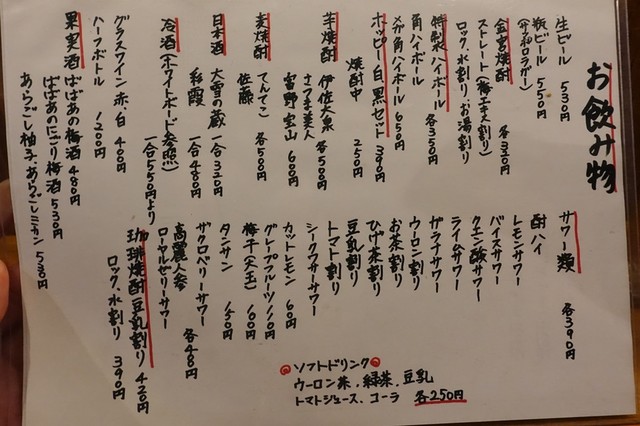 お飲み物
生ビール 530円
瓶ビール 550円
(サッポロラガー)
金宮焼酎 各320円
ストレート(梅エキス割り)
ロック、水割り、お湯割り
特製ハイボール 各350円
角ハイボール
メガ角ハイボール 650円
ホッピー白、黒セット 390円
焼酎中 250円
芋焼酎 伊佐大泉 各500円
さつま美人
富乃宝山 600円
麦焼酎 てんてこ 各500円
佐藤
日本酒 大雪の蔵 一合320円
彩霞 一合480円
冷酒(ホワイトボード参照)
一合550円より
グラスワイン赤、白 400円
ハーフボトル 1200円
果実酒 ばばあの梅酒 480円
ばばあのにごり梅酒 530円
あらごし柚子、あらごしミカン 530円
サワー類 各390円
酎ハイ
レモンサワー
バイスサワー
クエン酸サワー
ライムサワー
ガラナサワー
ウーロン割り
お茶割り
ひげ茶割り
豆乳割り
トマト割り
シークワサーサワー
カットレモン 60円
グレープフルーツ 110円
梅干(大玉) 100円
タンサン 150円
ザクロベリーサワー
高麗人参 各480円
ローヤルゼリーサワー
珈琲焼酎豆乳割り 420円
ロック、水割り 390円
ソフトドリンク
ウーロン茶、緑茶、豆乳
トマトジュース、コーラ 各250円